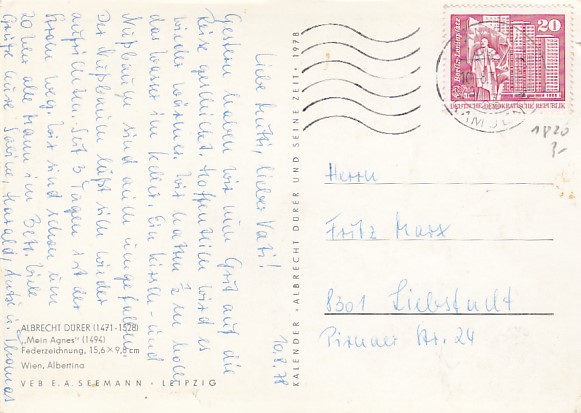 10.8.78
Liebe Mutti, lieber Vati!
Gestern haben wir nun Grit auf die
Reise geschickt. Hoffentlich wird es
wieder wärmer. Wir hatten z m hoch
das Wasser im Keller. Ein Kirsch- und
Nußbäume sind auch umgefallen.
Der Nußbaum läßt sich wieder
aufrichten. Seit 5 Tagen ist der
Strom weg. Wir sind schon um
20 Uhr alle Mann im Bett. Viele
Grüße Eure Sabine, Harald, Thomas
ALBRECHT DÜRER (1471-1528)
„Mein Agnes" (1494)
Federzeichnung, 15,6 × 9,8 cm
Wien, Albertina
VEB E. A. SEEMANN · LEIPZIG
KALENDER »ALBRECHT DÜRER UND SEINE ZEIT« 1978
20
Berlin-Leninplatz
DEUTSCHE DEMOKRATISCHE REPUBLIK
1820
Herrn
Fritz Marx
8301 Liebstadt
Pirnaer Str. 24